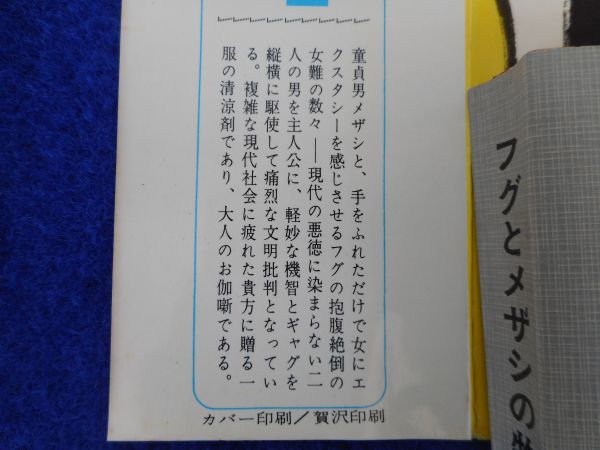 童貞男メザシと、手をふれただけで女にエ
クスタシーを感じさせるフグの抱腹絶倒の
女難の数々――現代の悪徳に染まらない二
人の男を主人公に、軽妙な機智とギャグを
縦横に駆使して痛烈な文明批判となってい
る。複雑な現代社会に疲れた貴方に贈る一
服の清涼剤であり、大人のお伽噺である。
カバー印刷／賀沢印刷
フグとメザシの